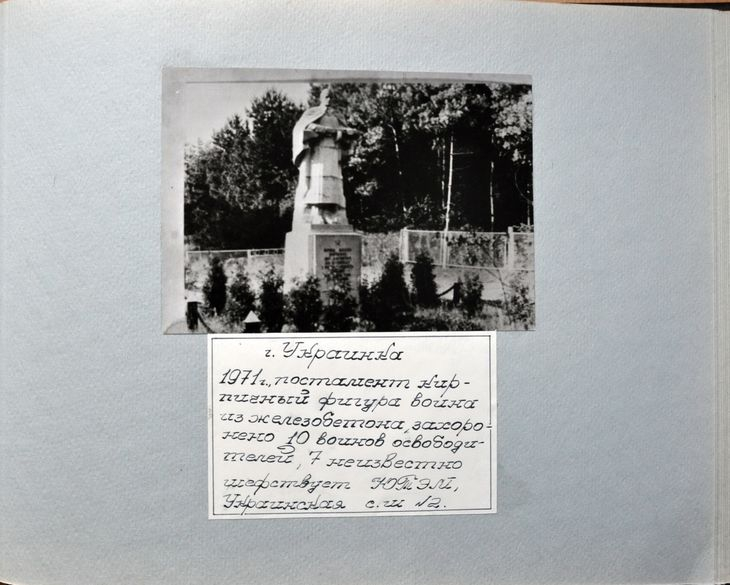 г. Украинка
1971г., постамент кир-
пичный фигура воина
из железобетона, захоро-
нено 10 воинов освободи-
телей, 7 неизвестно
шефствует ЮТЭМ,
Украинская с.ш №2.